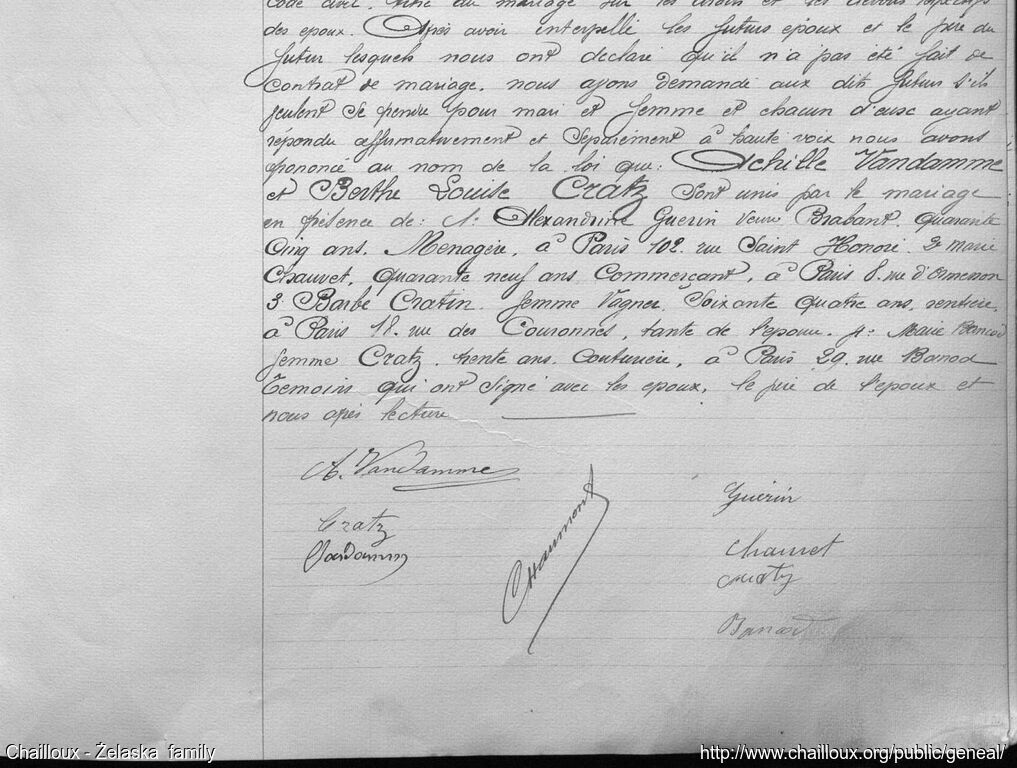 code civil, titre du mariage sur les droits et les devoirs respectifs
des epoux. Après avoir interpellé les futurs epoux et le père du
futur lesquels nous ont declaré qu'il n'a pas été fait de
contrat de mariage, nous avons demandé aux dits futurs s'ils
veulent se prendre pour mari et femme et chacun d'eux ayant
répondu affirmativement et séparément à haute voix nous avons
prononcé au nom de la loi que: Achille Vandamme
et Berthe Louise Cratz sont unis par le mariage
en présence de: 1º Alexandrine Guerin veuve Brabant, quarante
cinq ans, Menagère, à Paris 102 rue Saint Honoré. 2 marie
Chauvet, quarante neuf ans Commerçant, à Paris 8. rue d'Ormesson
3 Barbe Cratin. femme Vagner, Soixante quatre ans, rentière,
à Paris 18. rue des Couronnes, tante de l'epoux. 4: Marie
femme Cratz, trente ans. Couturière, à Paris 29. rue
Temoins qui ont signé avec les epoux, le père de l'epoux et
nous après lecture
A. VanDamme
Guérin
Cratz
Chaumont
Vandamme
Chauvet
Cratz